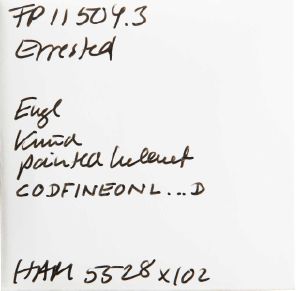 FP 11504.3
Errested

Engl
Knud
painted helmet
CODFINEONL...D

HAM 5528 x102